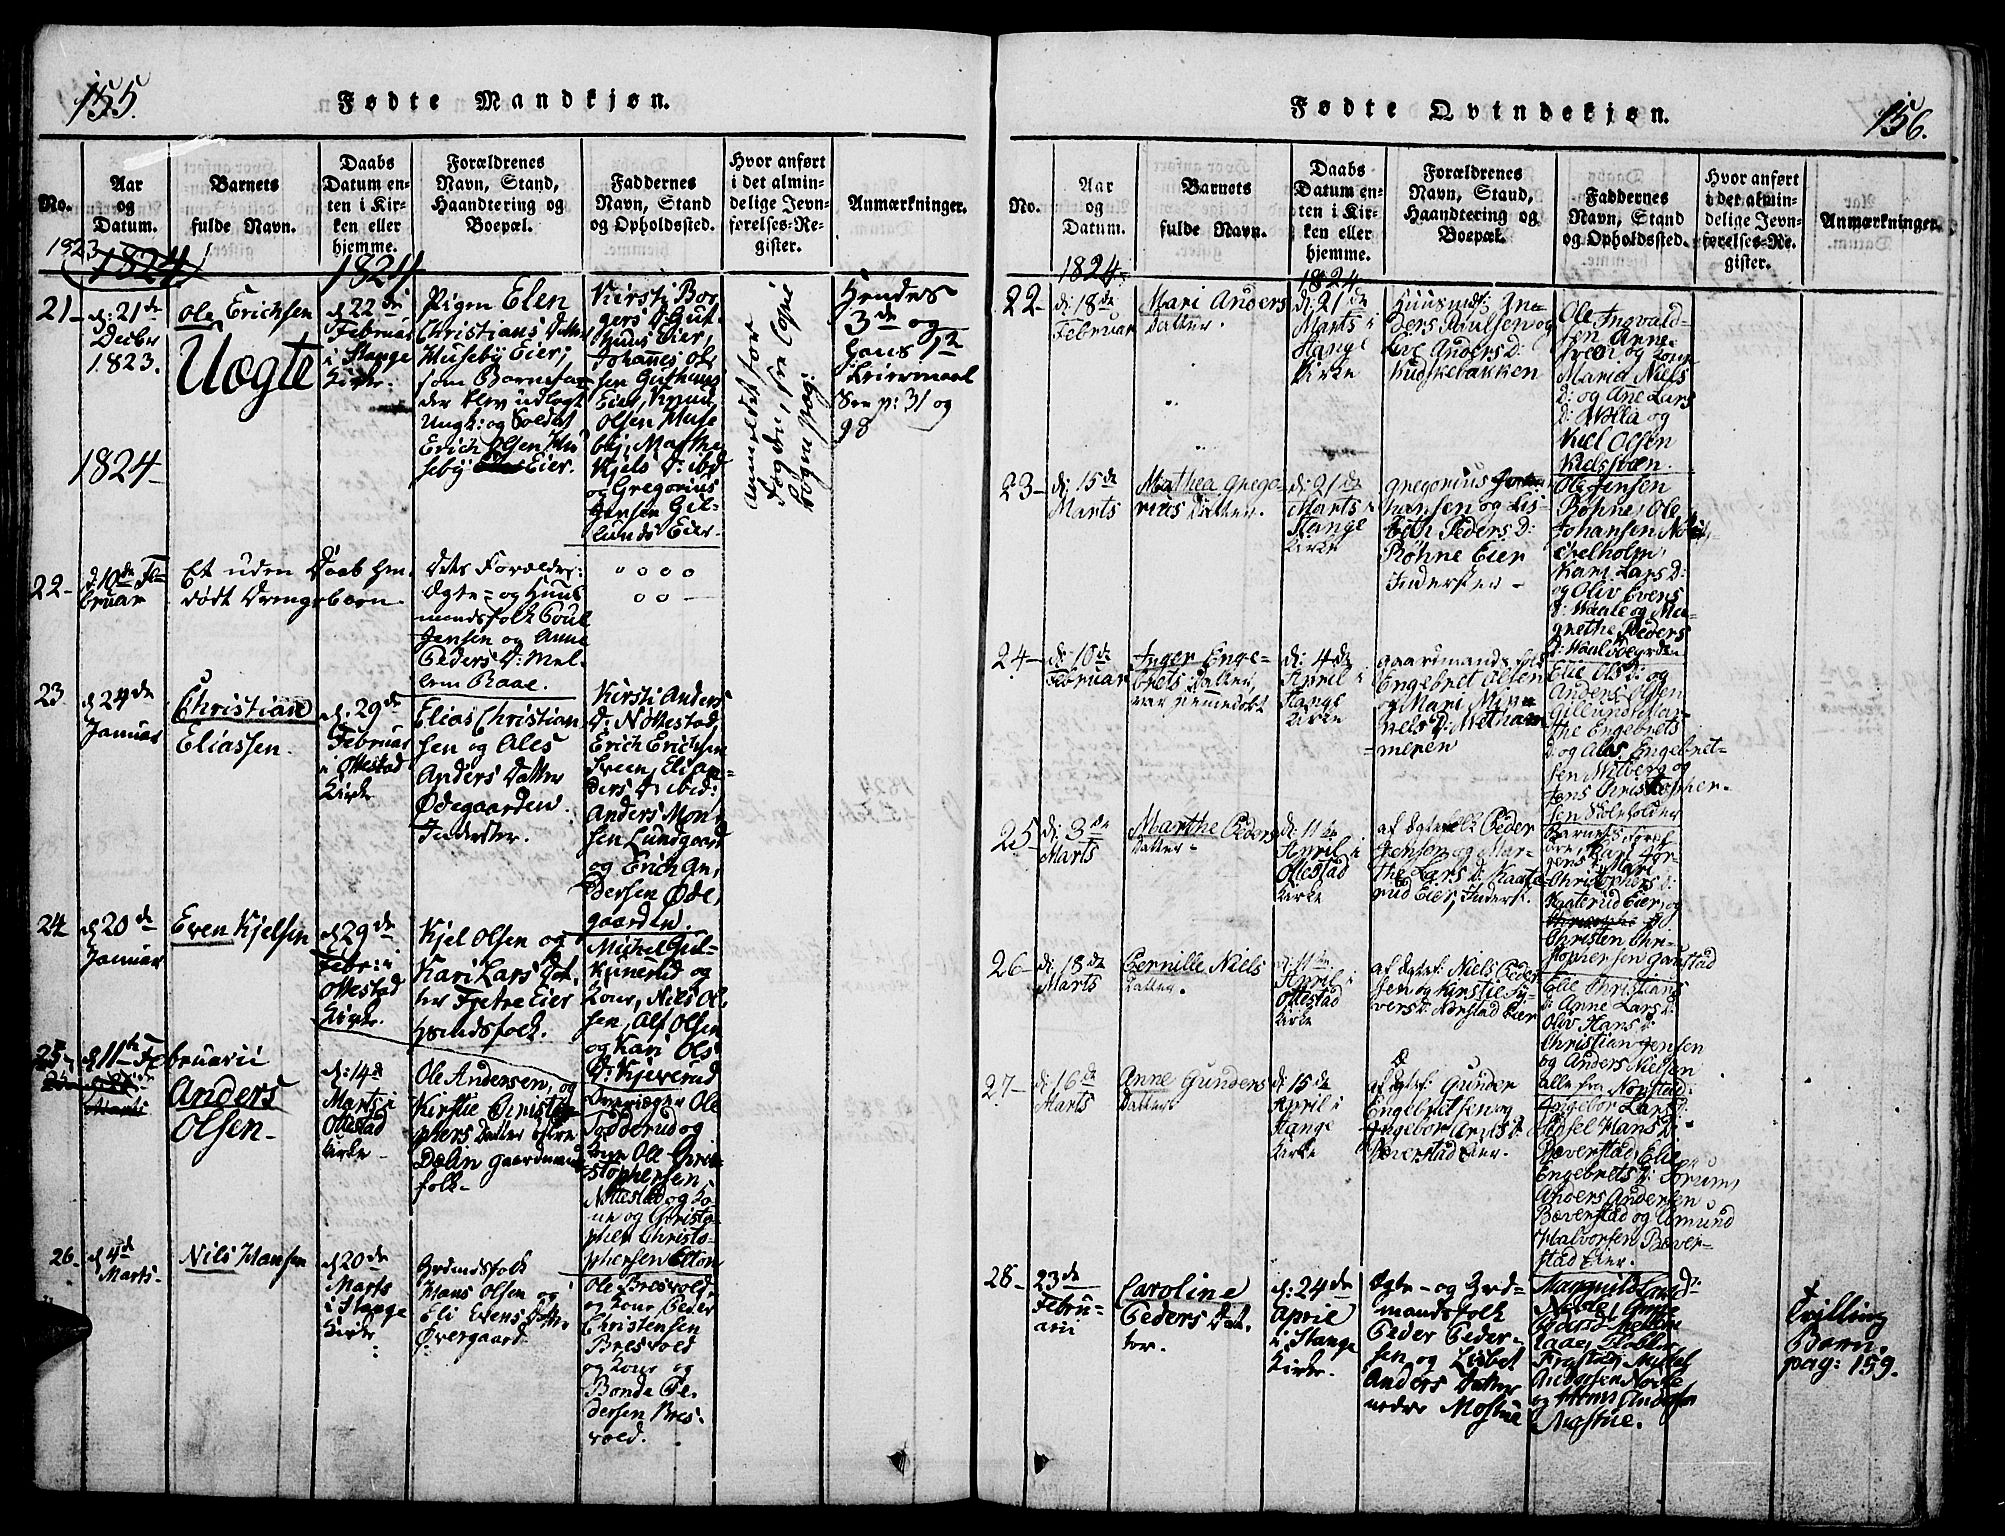 155.
Fødte Mandkjøn.
No.
Aar
og
Datum.
Barnets
fulde Navn.
Daabs
Datum en-
ten i Kir-
ken eller
hjemme.
Forældrenes
Navn, Stand,
Haandtering og
Boepæl.
Faddernes
Navn, Stand
og Opholdssted.
Hvor anført
i det almin-
delige Jevn-
førelses-Re-
gister.
Anmærkninger.
1823
1824
1824
21-
d: 21de
Decbr
1823.
Ole Erichsen
Uægte
d 22de
Februar
i Stange
Kirke.
Pigen Elen
Christians Datter
Huseby Eier;
som Barnefa-
der blev udlagt
Ungk: og Soldat
Erich Olsen Hu-
seby Eier.
Kirsti Bor-
gers D: Gut-
huus Eier,
Johannes Ol-
sen Guthuus
Eier, Knud
Olsen Huse
bye, Marthe
Kjels D: ibd
og Gregorius
Jensen Gil-
lunds Eier.
anmeldet for
Fogden, see Copie
bogen pag:
Hendes
3de og
Hans 1te
Leiermaal
See p: 31 og
98
1824
22-
d 10de Fe-
bruar
Et uden Daab hen-
dødt Drengebarn.
Dets Forældre:
Ægte- og Huus
mandsfolk Poul
Jensen og Anne
Peders D: Mel-
lem Raae.
23
d 24de
Januar
Christian
Eliassen.
d: 29de
Februar
i Ottestad
Kirke
Elias Christian
sen og Ales
Anders Datter
Ødegaarden.
Inderster.
Kirsti Anders
D: Nøttestad,
Erich Erichsen
Sveen, Eli An-
ders D: ibid:
Anders Mon-
sen Lundgaard
og Erich An-
dersen Øde-
gaarden.
24
d 20de
Januar
Even Kjelsen
d 29de
Febr: i
Ottestad
Kirke.
Kjel Olsen og
Kari Lars Dat-
ter Fretre Eier
Huusmdsfolk.
Michel Gul-
kinerud og
Kone, Niels Ol-
sen, Alf Olsen
og Kari Ols
D: Kjeverud
25-
d 11te Februarii
Marts
Anders
Olsen.
d: 14de
Marts i
Ottestad
Kirke
Ole Andersen, og
Kirstie Christo-
phers Datter øvre
Dælin Gaardmands
folk.
Ole
Fodderud og
Kone Ole Chri-
stophersen
Nøttestad og Ko-
ne og Christo-
pher Christo-
phersen Elton
26-
d 4de
Marts.
Nils Hansen
d 20de
Marts
i Stange
Kirke
Grdmdsfolk
Hans Olsen og
Eli Evens Datt:
Øvergaard
Ole Bresvold,
og Kone Peder
Christensen
Bresvold
og Kone og
Bonde Pe-
dersen Bres-
vold.
156.
Fødte Qvindekjøn.
No.
Aar
og
Datum.
Barnets
fulde Navn.
Daabs
Datum en-
ten i Kir-
ken eller
hjemme.
Forældrenes
Navn, Stand,
Haandtering og
Boepæl.
Faddernes
Navn, Stand
og Opholdssted.
Hvor anført
i det almin-
delige Jevn-
førelses-Re-
gister.
Anmærkninger.
1824
1824
22-
d: 18de
Februar
Mari Anders
Datter.
d: 21de
Marts i
Stange
Kirke
Huusmdf: An-
ders Poulsen og
Live Anders D:
Kudskebakken
Ole Ingvald-
sen Anne-
sveen og Kone
Maria Niels
D: og Ane Lars
D: Wolla og
Kiel Olsen
Kielsveen.
23-
d: 15de
Marts
Mathea Grego-
rius Datter.
d: 21de
Marts i
Stange
Kirke
Gregorius
hansen og Lis-
beth Peders D:
Røhne Eier
Inderster -
Ole Jensen
Røhne, Ole
Johansen
Kari Lars D:
og Oliv Evens
D: og Mar-
grethe Peders
24-
d: 10de
Februar
Inger Enge-
brets Datter,
var hiemmedøbt
d: 4de
April i
Stange
Kirke
Gaardmandsfolk
Engebret Olsen
og Mari
Elie Ols D: og
Anders Olsen
Gillund Mar-
the Engebrets
D: og Engebret-
sen og
Jens Christopher-
sen
25-
d: 3de
Marts
Marthe Peders
Datter.
d: 11te
April i
Ottestad
Kirke
af Ægtef: Peder
Jensen og Mar-
the Lars D: Kaate-
rud Eier, Inderst.
Barnets foræl-
dre, Kari Jør-
gens D: Mari
Christophers D:
Kaaterud Eier, og
Christen Chri-
stophersen Gaustad
26-
d: 18de
Marts
Pernille Niels
Datter.
d: 11te
April i
Ottestad
Kirke
af Ægtef: Niels Peder-
sen og Kirstie Sy-
vers D: Norstad Eier
Elie Christians
D: Anne Lars D:
Oliv Hans D:
Christian Jensen
og Anders Nielsen
alle fra Norstad.
27-
d: 16de
Marts
Anne Gunders
Datter.
d: 15de
April i
Stange
Kirke
af Ægtef: Gunder
Engebretsen og
Ingebor Arnts D:
Bæverstad Eier.
Ingebor Lars D:
Sidsel Hans D:
Bæverstad, Elie
Engebrets D:
Anders Andersen
Bæverstad og Amund
Halvorsen Bæver-
stad Eier.
28-
23de
Febru-
arii
Caroline
Peders Dat-
ter.
d: 24de
April
i Stange
Kirke.
Ægte- og Grd-
mandsfolk
Peder Peder-
sen og Lisbet
Anders Datter
nedre Mostue
Andersen
og Hans Anders
Mostue.
Tvilling
Barn.
pag: 159.